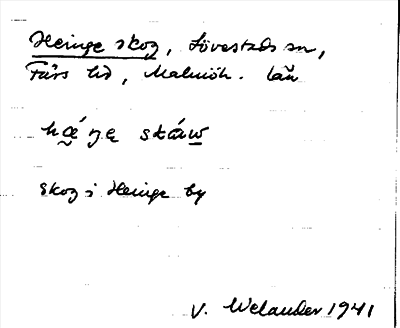 Heinge skog, Lövestads sn,
Färs hd, Malmöh. län
skog i Heinge by
V. Welander 1941